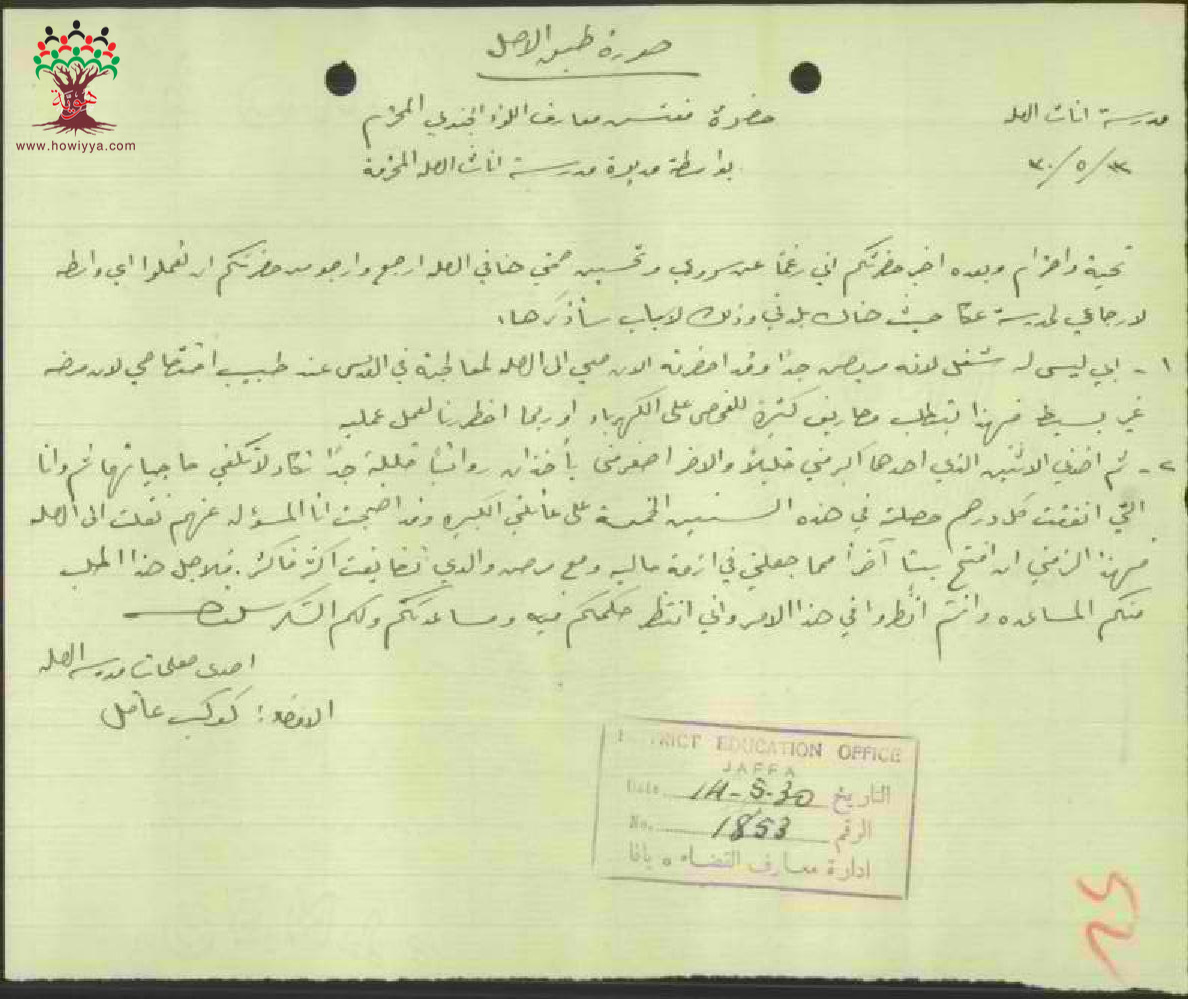 هوية
www.howiyya.com
صورة طبق الاصل
مدرسة اناث الرمله
حضرة مفتش معارف اللواء الجنوبي المحترم
٣٠/٥/١٣
بواسطة مديرة مدرسة اناث الرمله المحترمة
تحية واحترام وبعده اخبر حضرتكم اني رغمًا عن سروري وتحسين صحتي هنا في الرمله ارجع وارجو من حضرتكم ان تعملوا اي واسطه
لارجاعي لمدرسة عكا حيث هناك بلدتي وذلك لاسباب سأذكرها:
١- ابي ليس له شغل لانه مريض جدًا وقد احضرته الان معي الى الرمله لمعالجته في القدس عند طبيب اختصاصي لان مرضه
غير بسيط فهذا يتطلب مصاريف كثيرة للفحص على الكهرباء او ربما اضطررنا لعمل عمليه
٢- ثم اخوتي الاثنين الذي احدهما اكبر مني قليلاً والاخر اصغر مني يأخذان رواتبًا قليلة جدًا تكاد لا تكفي حاجياتهما ثم وانا
التي انفقت كل درهم حصلته في هذه السنين الخمسة على عائلتي الكبيره وقد اصبحت انا المسؤله عنهم نقلت الى الرمله
فهذا الزمني ان افتح بيتًا آخرًا مما جعلني في ازمة ماليه ومع مرض والدي تضايقت اكثر فاكثر. فلاجل هذا اطلب
منكم المساعده وانتم انظروا في هذا الامر واني انتظر حكمكم فيه ومساعدتكم ولكم الشكر سلفًا
احدى معلمات مدرسة الرمله
الامضاء: كوكب عامل
DISTRICT EDUCATION OFFICE
JAFFA
Date 14-5-30 التاريخ
No. 1853 الرقم
ادارة معارف القضاء ٥ يافا